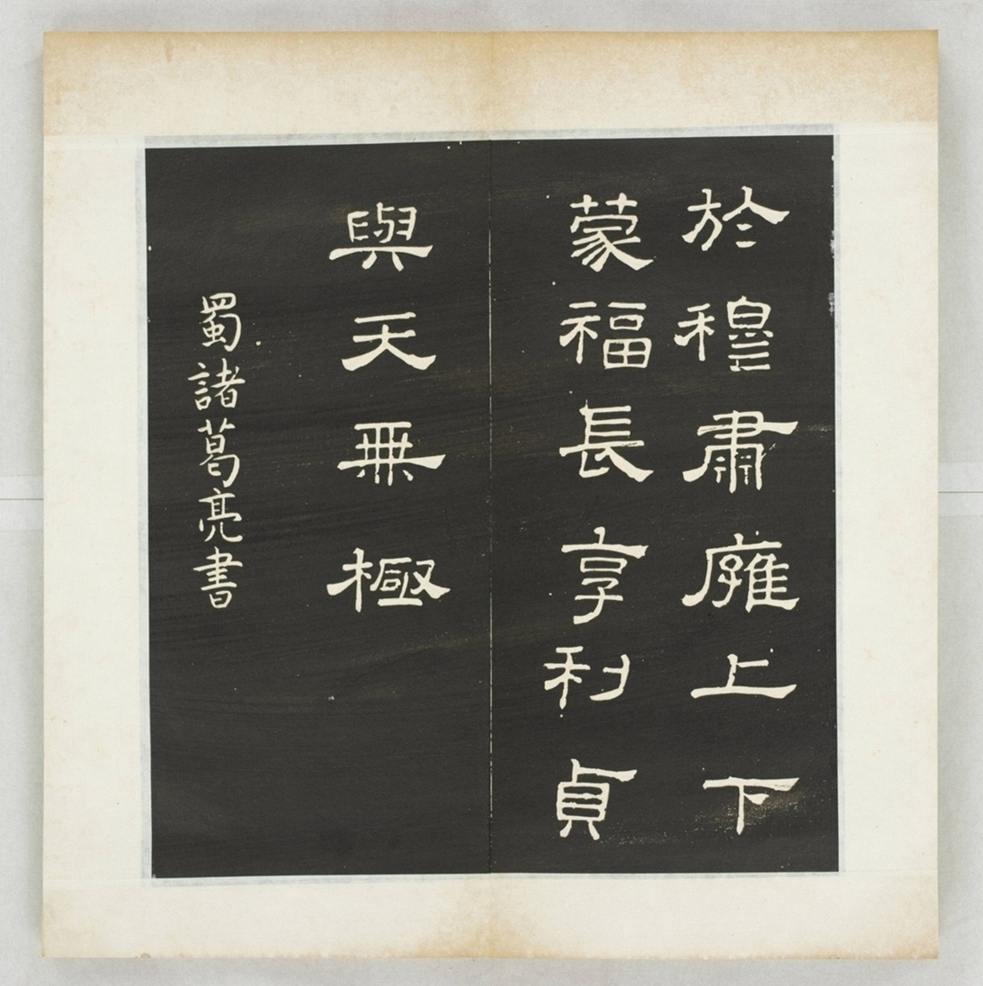 於穆肅雍上下
蒙福長享利貞
與天無極
蜀諸葛亮書